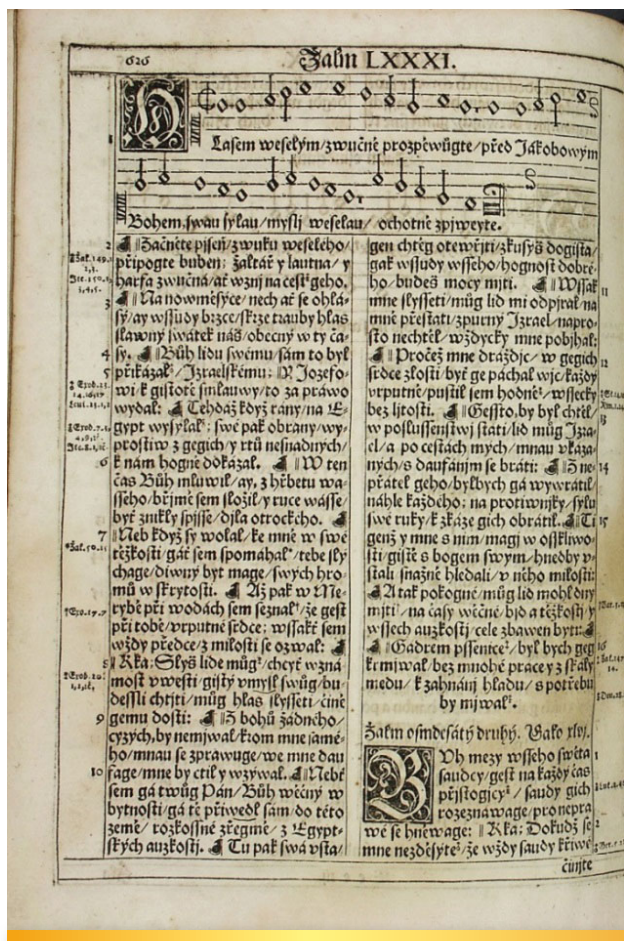 626
Žalm LXXXI.
Hlasem weselým/zwučně prozpěwůgte/před Jákobowým
Bohem, swau sylau/mysli weselau/ ochotně zpjweyte.
2 Začněte pjseň/zwuku weselého/
připogte buben: žaltář y lautna/ y
harfa zwučná/ať wznj na cest geho.
3 Na nowměsyce/nech ať se ohlá-
sý/ay wssudy brzce/skrze trauby hlas
slawný swátek náš/obecný w ty ča-
4 sy. Bůh lidu swému sám to byl
5 přikázal/Izraelskému: Y Jozefo-
wi k gistotě smlauwy/to za práwo
wydal: Tehdáž když rány/na E-
gypt wysýlal: swé pak obrany/wy-
prostiw z gegich/y rtů nesnadných/
6 k nám hogně dokázal. W ten
čas Bůh mluwil/ay, z hřbetu wa-
sseho/břjmě sem složil/y ruce wásse/
byť znikly spjsse/djla otrockého.
7 Neb když sy wolal/ke mně w swé
těžkosti/gáť sem spomáhal/tebe sly
chage/diwný byt mage/swých hro-
mů w skrytosti. Až pak w Me-
rybě při wodách sem seznal/že gest
při tobě/vrputné srdce: wssakť sem
wždy předce/z milosti se ozwal:
8 Řka: Slyš lide můg/chcyť wzná
most vwesti/gistý vmysl swůg/bu-
dessli chtjti/můg hlas slysseti/čině
9 gemu dosti: Z bohů žádného/
cyzých, by nemjwal/krom mne samé-
ho/mnau se zprawuge/we mne dau
10 fage/mne by ctil y wzýwal. Nebť
sem gá twůg Pán/Bůh wěčný w
bytnosti/gá tě přiwedl sám/do této
země/ rozkossné zřegmě/ z Egypt-
ských auzkosti. Tu pak swá vsta/
gen chtěg otewřjti/zkusýš dogista/
gak wssudy wsseho/hognost dobré-
ho/ budeš mocy mjti. Wssak 11
mne slysseti/můg lid mi odpjral/na
mně přestati/zpurný Izrael/napro-
sto nechtěl/wždycky mne pobjhal:
Pročež mne dráždjc/w gegich 12
srdce zlosti/byť ge páchal wjc/každý
vrputně/pustil sem hodně/wssecky
bez ljtosti. Gessto, by byl chtěl/ 13
w poslussenstwj státi/lid můg Izra-
el/a po cestách mých/mnau vkáza-
ných/s daufánjm se bráti: Z ne- 14
přátel geho/bylbych gá wywrátil/
náhle každého: na protiwnjky/sylu
swé ruky/k zkáze gich obrátil. Ti 15
genž y mne s njm/magj w ossKliwo-
sti/gistě s bogem swým/hnedby v-
stali snažně hledali/v něho milosti:
A tak pokogně/můg lid mohl dny
mjti/na časy wěčné/bjd a těžkostj/y
wssech auzkostj/cele zbawen býti:
Gadrem pssenice/byl bych geg 16
krmjwal/bez mnohé práce y z skály
medu/k zahnánj hladu/s potřebu
bych mjwal.
Žalm osmdesátý druhý. Gako xlvj.
Bůh mezy wsseho swěta 1
saudcy/gest na každý čas
přjstogjcý/ saudy gich
rozeznáwage/pro nepra
wé se hněwage: Řka: Dokudž se 2
mne nezděsýte/že wždy saudy křiwé
činjte